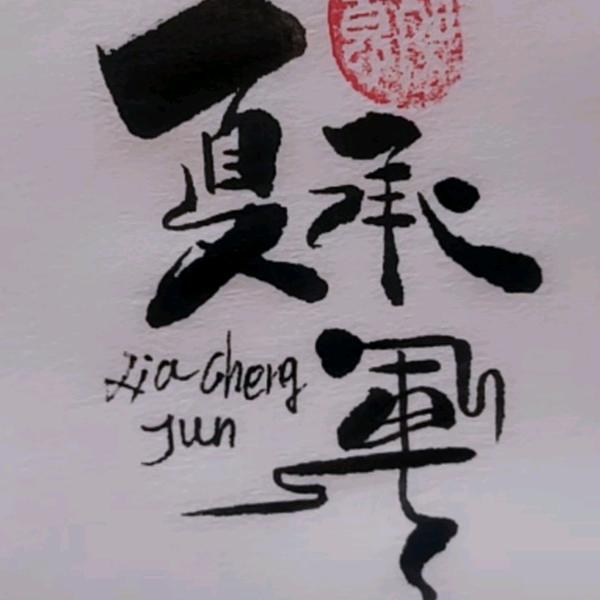 夏承軍
Xia Cheng
Jun